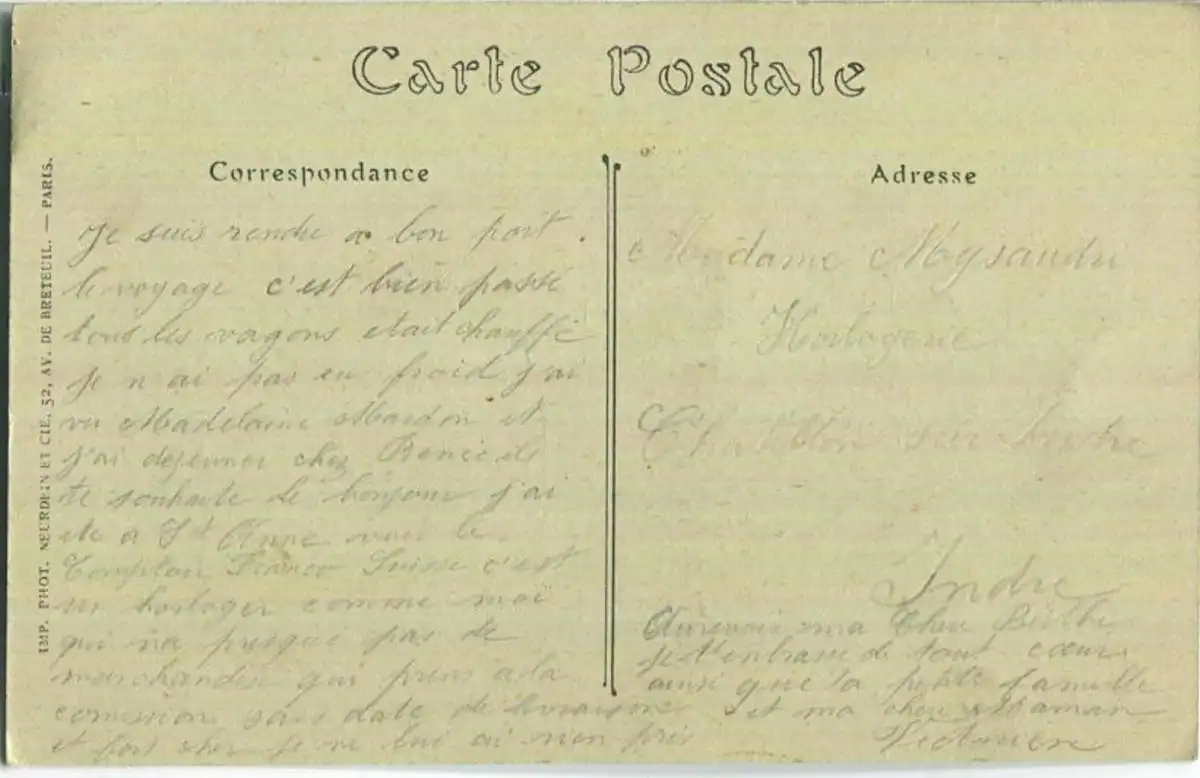 Carte Postale
Correspondance
Adresse
IMP. PHOT. NEURDEIN ET CIE. 52, AV. DE BRETEUIL. — PARIS.
Je suis rendu a bon port.
le voyage c'est bien passé
tous les vagons etait chauffé
je n ai pas eu froid j'ai
vu Madelaine Mardon et
j'ai dejeuner chez ils
te souhaite le bonjour j'ai
ete a St Anne voir le
Comptoir Franco Suisse c'est
un horloger comme moi
qui na presque pas de
marchandise qui prens a la
comission sans date de livraison
et fort cher je ne lui ai rien pris
Madame Mysandri
Horlogerie
Chatillon sur Indre
Indre
Aurevoir ma Cher Berthe
je t'embrasse de tout coeur
ainsi que la petite famille
et ma cher Maman